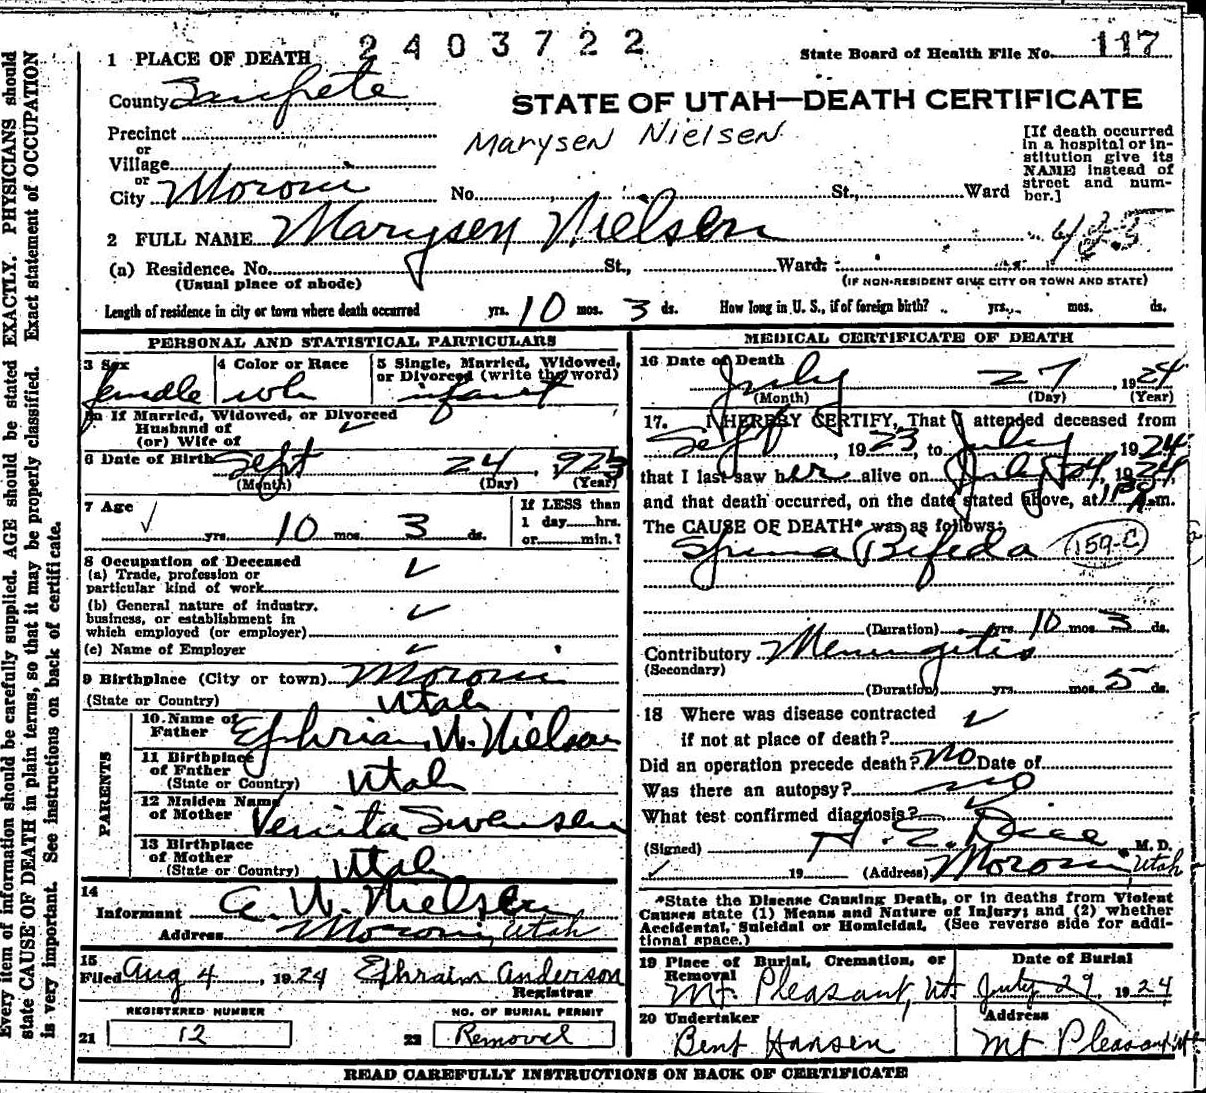 2403722
State Board of Health File No. 117
1 PLACE OF DEATH
County Sanpete
STATE OF UTAH—DEATH CERTIFICATE
Precinct
or
Village
or
City Moroni No. St., Ward
Marysen Nielsen
[If death occurred
in a hospital or in-
stitution give its
NAME instead of
street and num-
ber.]
2 FULL NAME Marysen Nielsen
(a) Residence. No. St., Ward.
(Usual place of abode) (IF NON-RESIDENT GIVE CITY OR TOWN AND STATE)
Length of residence in city or town where death occurred yrs. 10 mos. 3 ds. How long in U. S., if of foreign birth? yrs. mos. ds.
PERSONAL AND STATISTICAL PARTICULARS
3 Sex 4 Color or Race 5 Single, Married, Widowed,
or Divorced (write the word)
female wh infant
If Married, Widowed, or Divorced
Husband of
(or) Wife of
6 Date of Birth Sept 24, 1923
(Month) (Day) (Year)
7 Age If LESS than
1 day hrs.
yrs. 10 mos. 3 ds. or min.?
8 Occupation of Deceased
(a) Trade, profession or
particular kind of work
(b) General nature of industry,
business, or establishment in
which employed (or employer)
(c) Name of Employer
9 Birthplace (City or town) Moroni
(State or Country) Utah
PARENTS
10 Name of
Father Ephriam W. Nielsen
11 Birthplace
of Father
(State or Country) Utah
12 Maiden Name
of Mother Venita Swensen
13 Birthplace
of Mother
(State or Country) Utah
14
Informant W. Nielsen
Address Moroni, Utah
15
Filed Aug 4, 1924 Ephraim Anderson
Registrar
REGISTERED NUMBER NO. OF BURIAL PERMIT
21 12 22 Removal
MEDICAL CERTIFICATE OF DEATH
16 Date of Death
July 27, 1924
(Month) (Day) (Year)
17. I HEREBY CERTIFY, That I attended deceased from
Sept, 1923, to July 1924
that I last saw her alive on July 24, 1924,
and that death occurred, on the date stated above, at m.
The CAUSE OF DEATH* was as follows:
Spina Bifeda (159-C)
(Duration) yrs. 10 mos 3 ds.
Contributory Meningitis
(Secondary)
(Duration) yrs. mos. 5 ds.
18 Where was disease contracted
if not at place of death?
Did an operation precede death? No Date of
Was there an autopsy? no
What test confirmed diagnosis?
(Signed) M. D.
19 (Address) Moroni, Utah
*State the Disease Causing Death, or in deaths from Violent
Causes state (1) Means and Nature of Injury; and (2) whether
Accidental, Suicidal or Homicidal. (See reverse side for addi-
tional space.)
19 Place of Burial, Cremation, or Date of Burial
Removal
Mt. Pleasant, Ut July 29, 1924
20 Undertaker Address
Bent Hansen Mt Pleasant Ut
READ CAREFULLY INSTRUCTIONS ON BACK OF CERTIFICATE
Every item of information should be carefully supplied. AGE should be stated EXACTLY. PHYSICIANS should
state CAUSE OF DEATH in plain terms, so that it may be properly classified. Exact statement of OCCUPATION
is very important. See instructions on back of certificate.